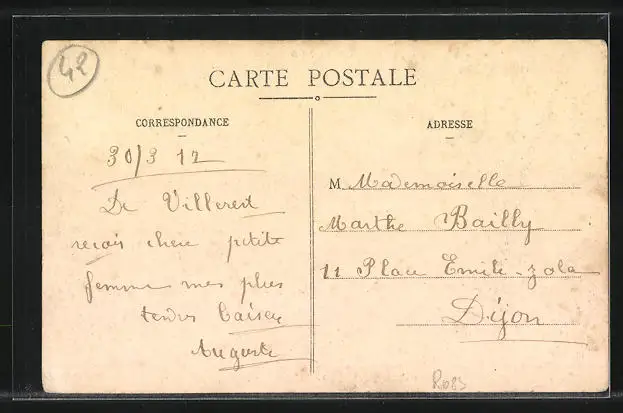 42
CARTE POSTALE
CORRESPONDANCE
30/3 12
De Villerest
recois chere petite
femme mes plus
tendres baisers
Auguste
ADRESSE
M Mademoiselle
Marthe Bailly
11 Place Emile-zola
Dijon
R083